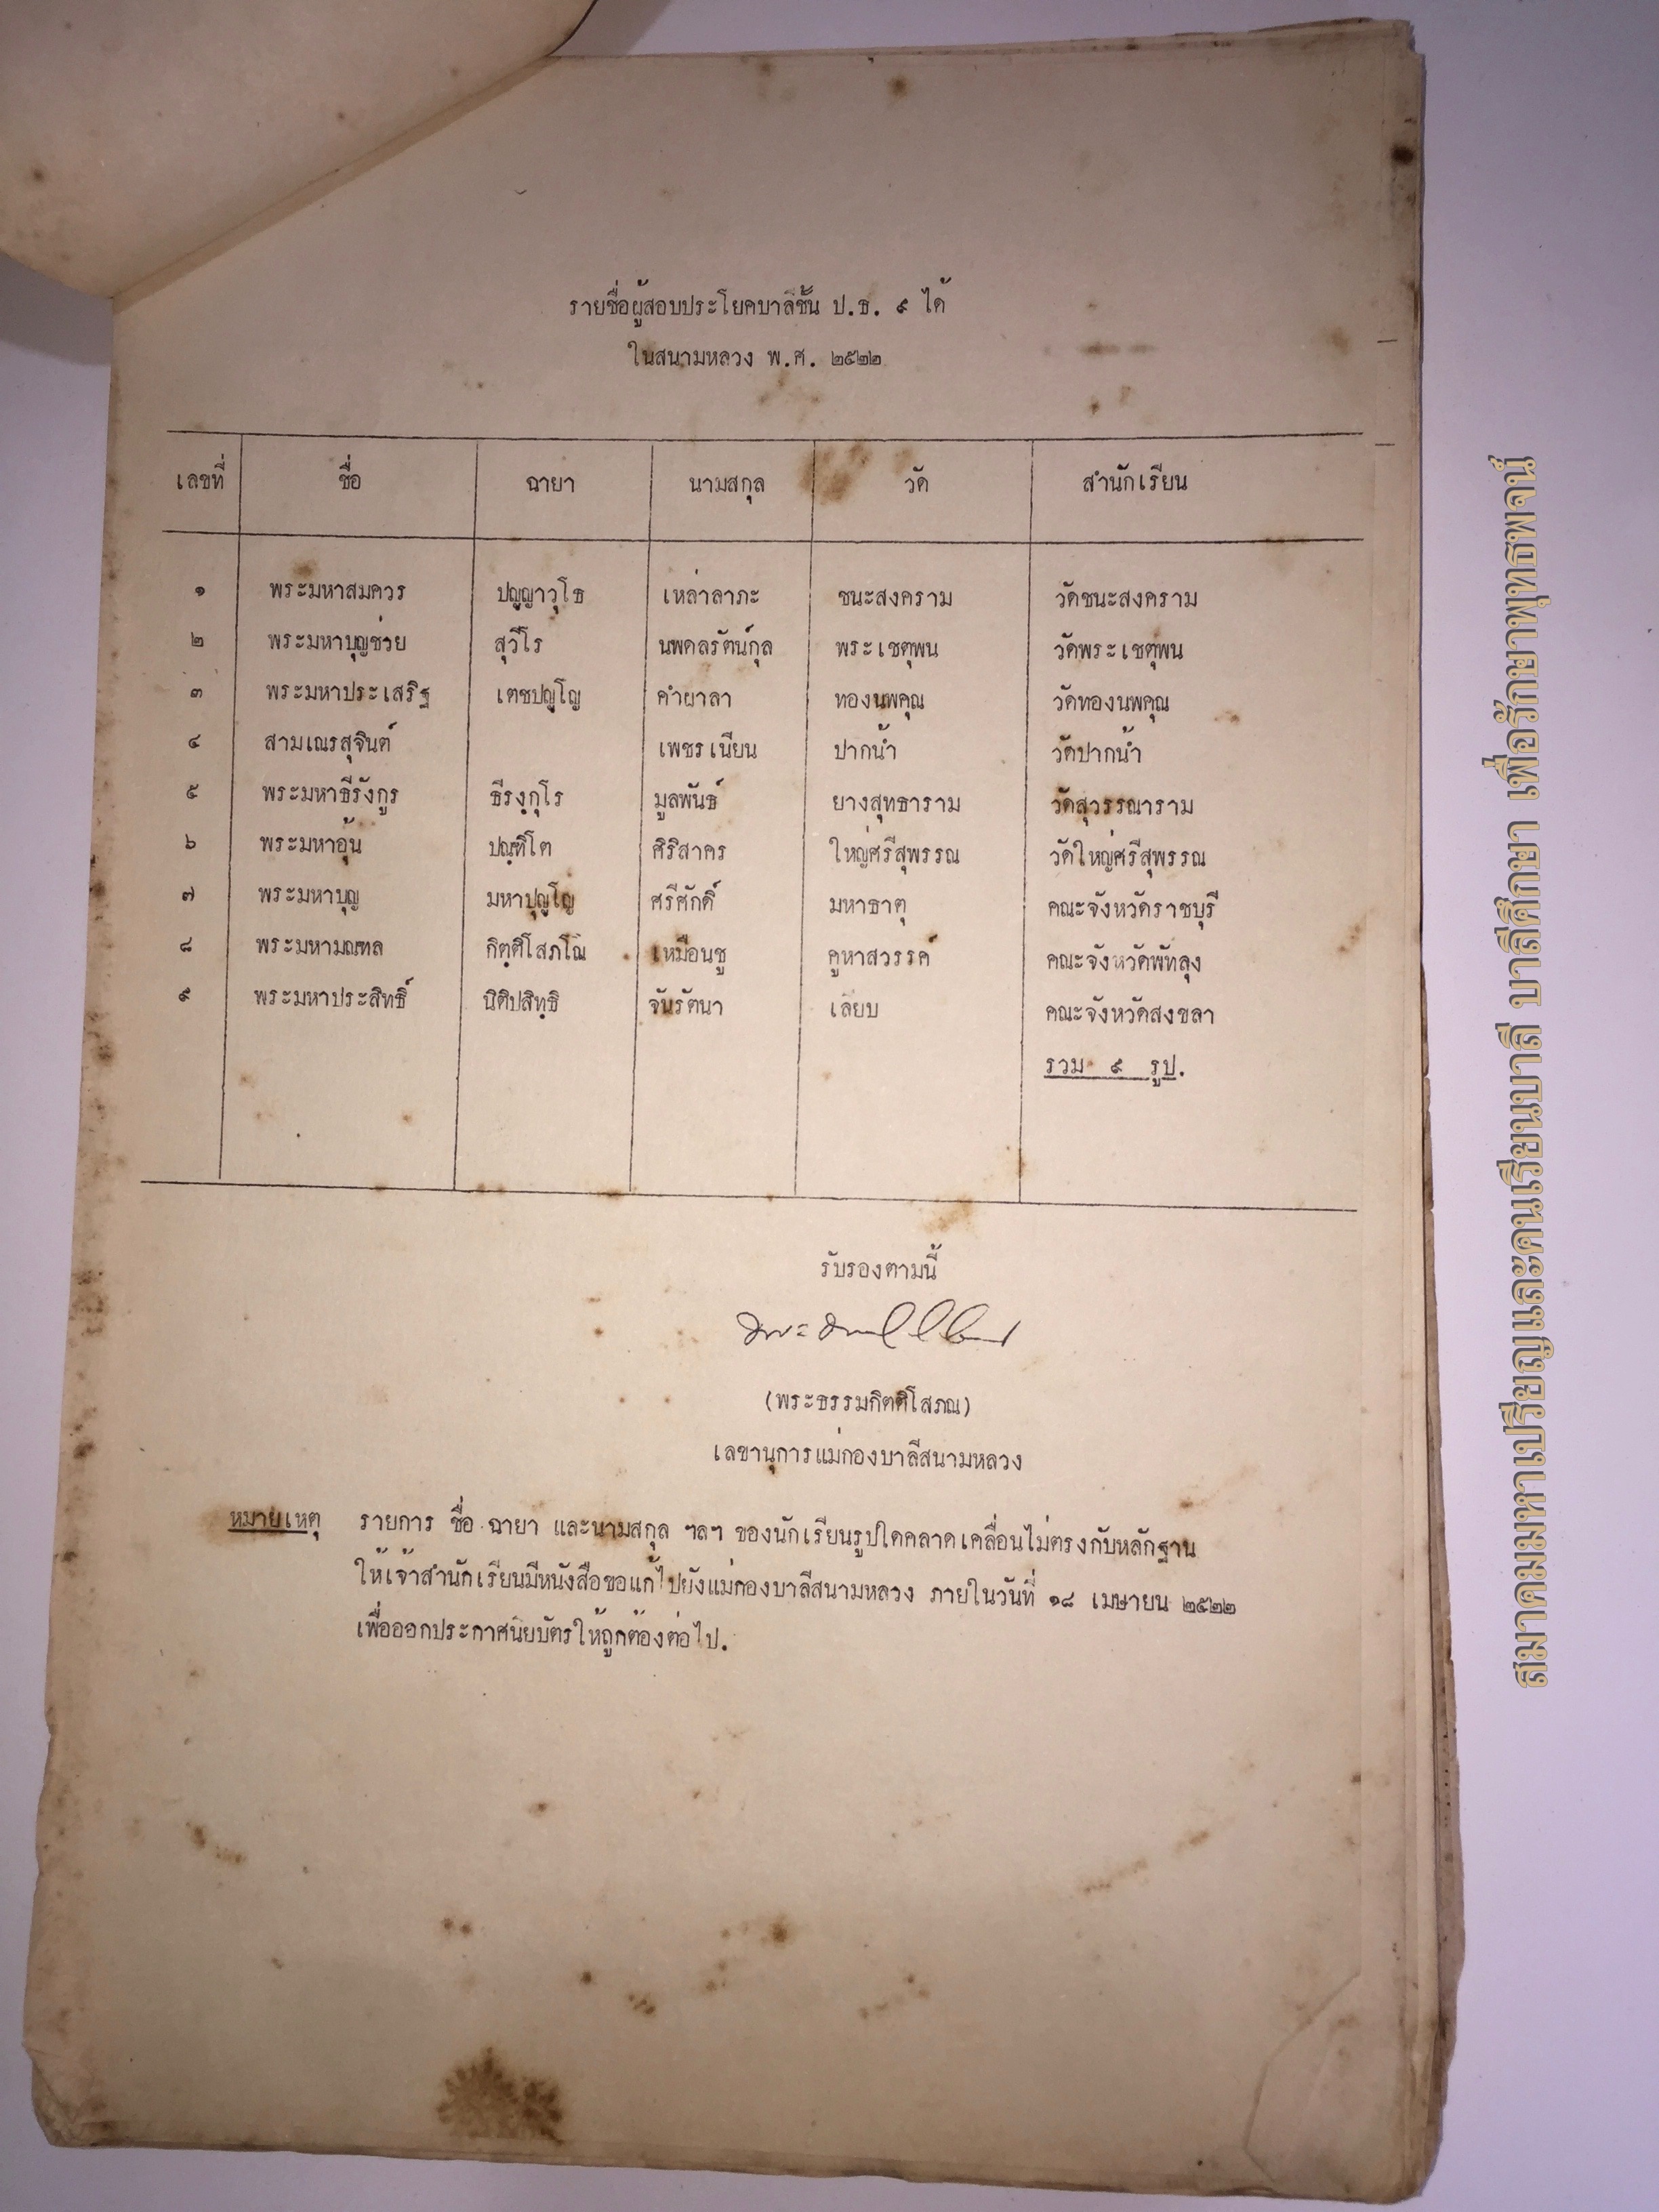 รายชื่อผู้สอบประโยคบาลีชั้น ป.ธ. ๙ ได้
ในสนามหลวง พ.ศ. ๒๕๒๒
เลขที่ ชื่อ ฉายา นามสกุล วัด สำนักเรียน
๑ พระมหาสมควร ปญฺญาวุโธ เหล่าลาภะ ชนะสงคราม วัดชนะสงคราม
๒ พระมหาบุญช่วย สุวีโร นพคลรัตน์กุล พระเชตุพน วัดพระเชตุพน
๓ พระมหาประเสริฐ เตชปญฺโญ คำผาลา ทองนพคุณ วัดทองนพคุณ
๔ สามเณรสุจินต์ เพชรเนียน ปากน้ำ วัดปากน้ำ
๕ พระมหาธีรังกูร ธีรงฺกุโร มูลพันธ์ ยางสุทธาราม วัดสุวรรณาราม
๖ พระมหาอุ้น ปณฺฑิโต ศิริสาคร ใหญ่ศรีสุพรรณ วัดใหญ่ศรีสุพรรณ
๗ พระมหาบุญ มหาปุญฺโญ ศรีศักดิ์ มหาธาตุ คณะจังหวัดราชบุรี
๘ พระมหามณฑล กิตฺติโสภโณ เหมือนชู คูหาสวรรค์ คณะจังหวัดพัทลุง
๙ พระมหาประสิทธิ์ นิติปสิทฺธิ จันรัตนา เลียบ คณะจังหวัดสงขลา
รวม ๙ รูป.
รับรองตามนี้
(พระธรรมกิตติโสภณ)
เลขานุการแม่กองบาลีสนามหลวง
หมายเหตุ รายการ ชื่อ ฉายา และนามสกุล ฯลฯ ของนักเรียนรูปใดคลาดเคลื่อนไม่ตรงกับหลักฐาน
ให้เจ้าสำนักเรียนมีหนังสือขอแก้ไปยังแม่กองบาลีสนามหลวง ภายในวันที่ ๑๘ เมษายน ๒๕๒๒
เพื่อออกประกาศนียบัตรให้ถูกต้องต่อไป.
สมาคมมหาเปรียญและคนเรียนบาลี บาลีศึกษา เพื่อรักษาพุทธพจน์